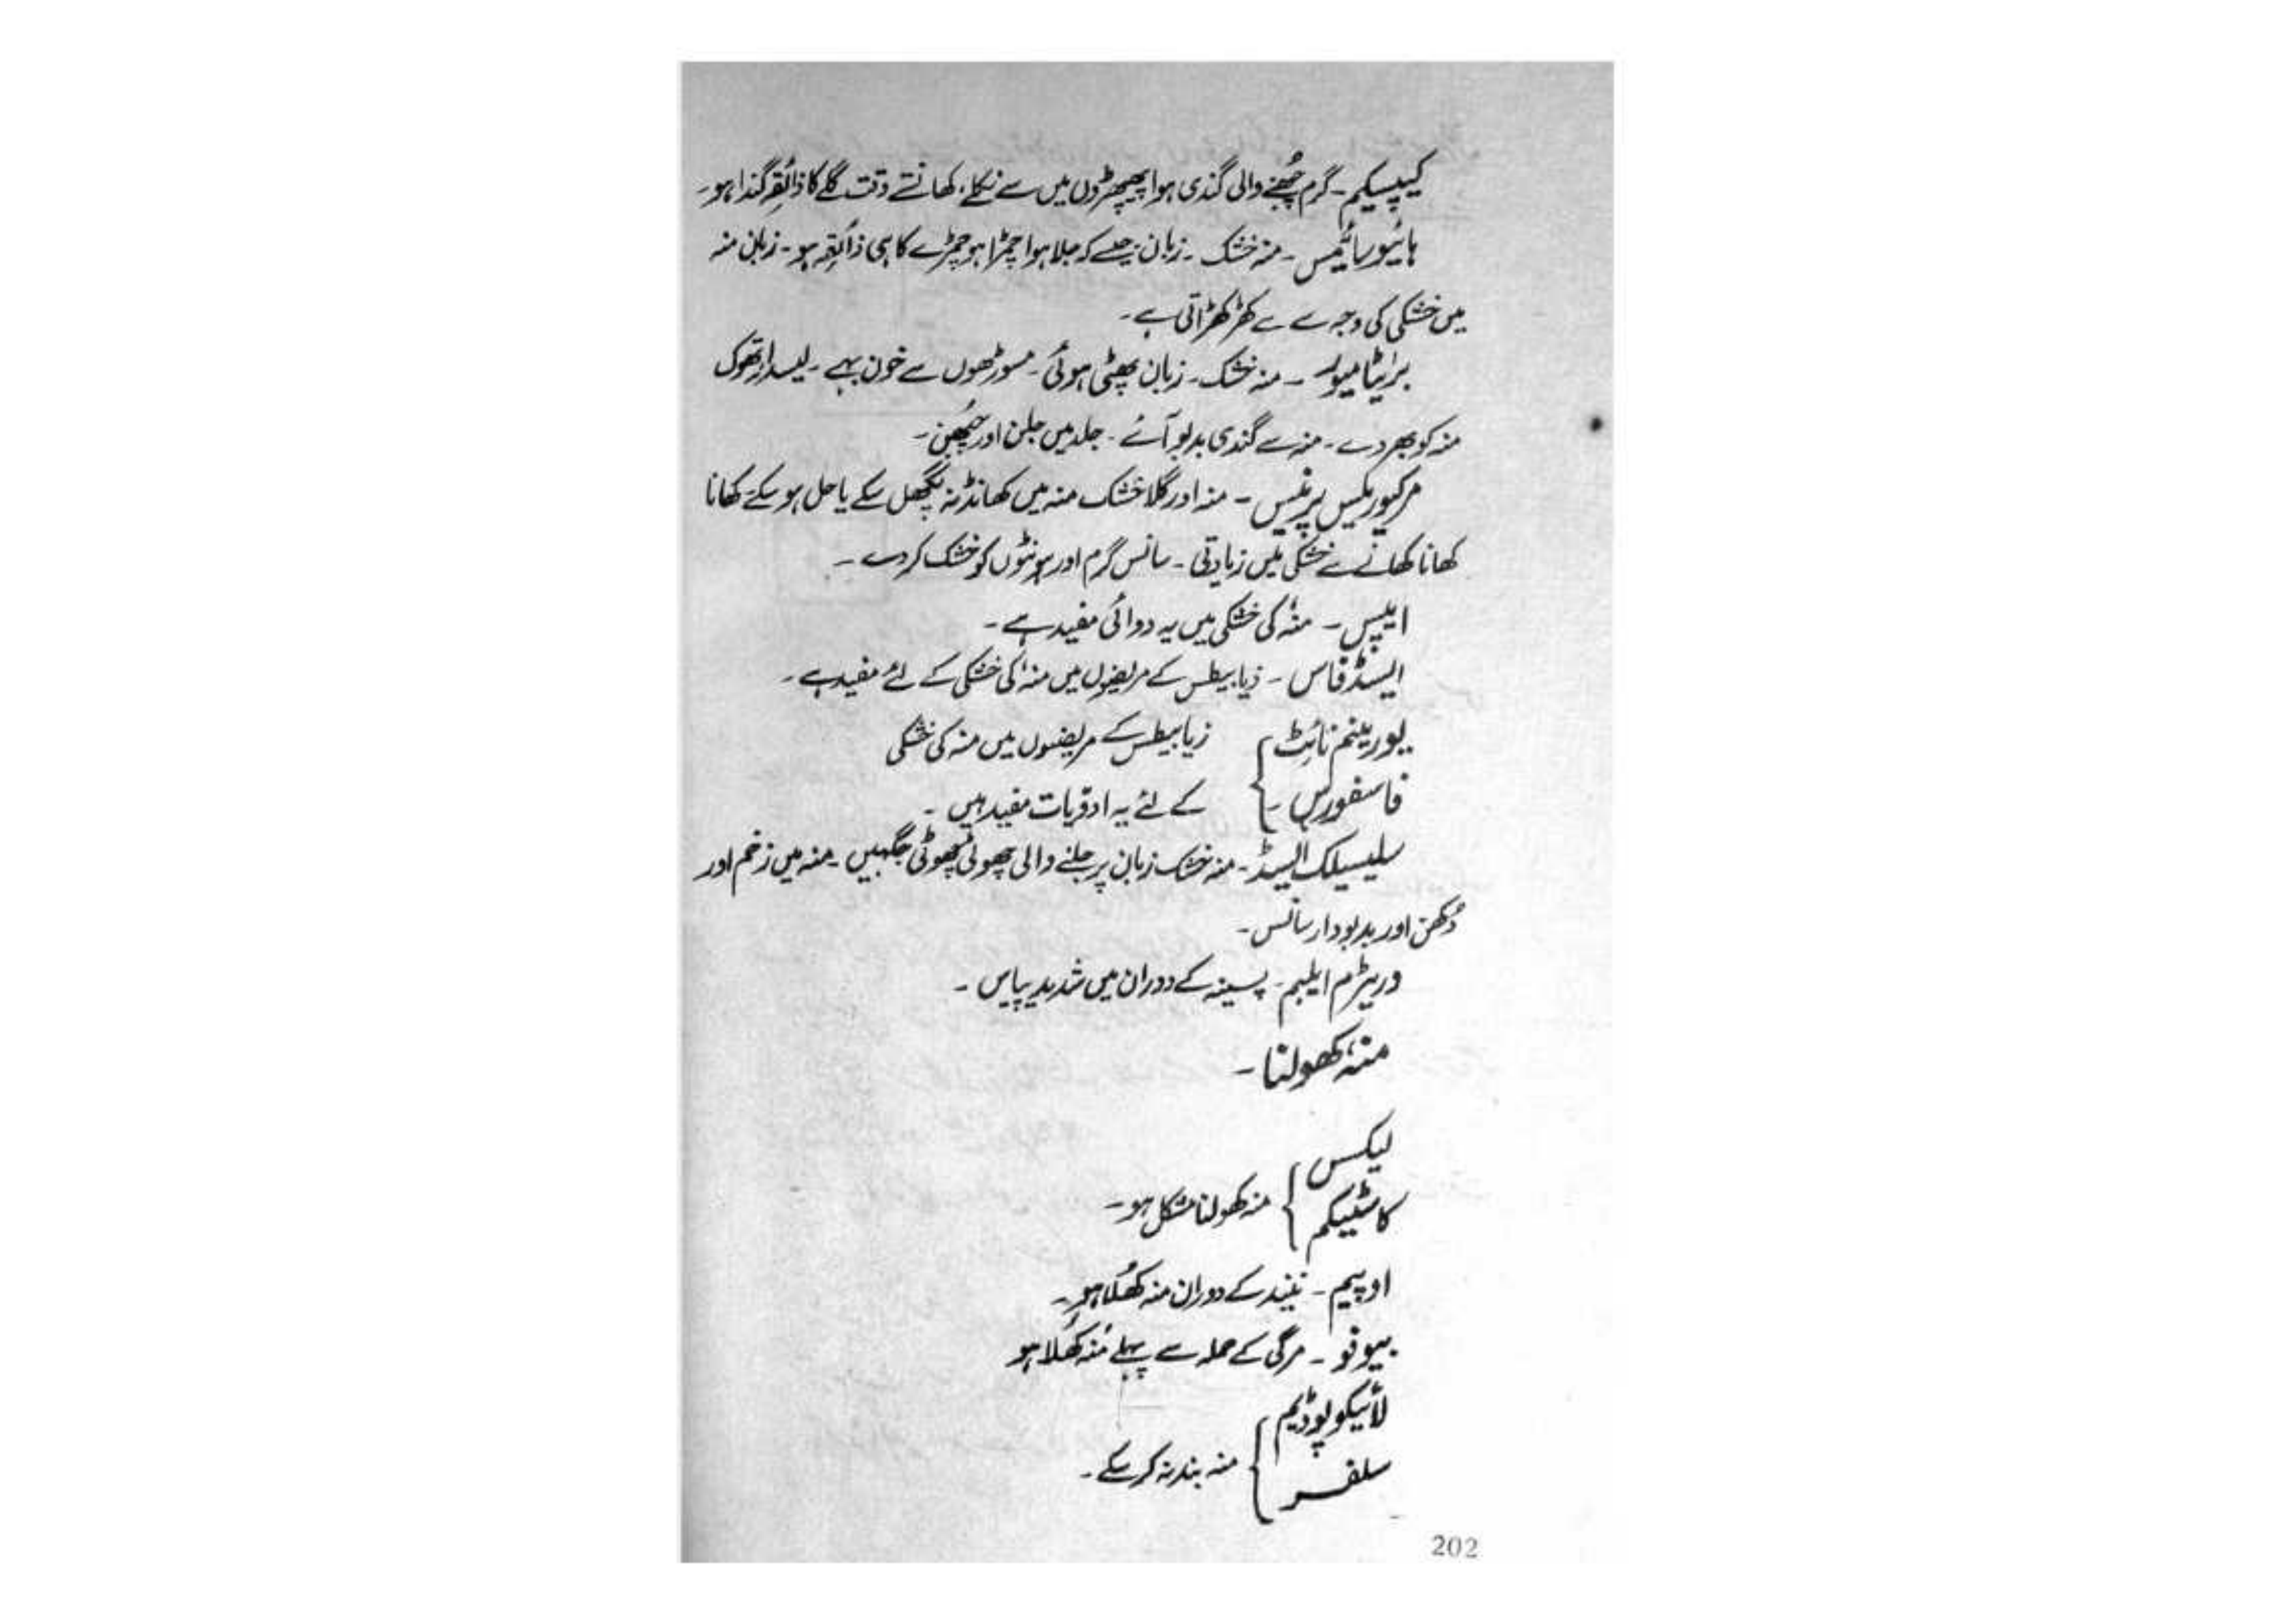 کیپسیکم۔ گرم چُبھنے والی گندی ہوا پھیپھڑوں میں سے نکلے، کھانستے وقت گلے کا ذائقہ گندا ہو۔
ہائیوسائیمس۔ منہ خشک۔ زبان جیسے کہ جلا ہوا چمڑا ہو چمڑے کا ہی ذائقہ ہو۔ زبان منہ
میں خشکی کی وجہ سے سے کھڑکھڑاتی ہے۔
برائیٹا میور۔ منہ خشک۔ زبان پھٹی ہوئی۔ مسوڑھوں سے خون بہے۔ لیسدار تھوک
منہ کو بھر دے۔ منہ سے گندی بدبو آئے۔ جلد میں جلن اور چُبھن۔
مرکیوریس پرینس۔ منہ اور گلا خشک منہ میں کھانڈ نہ پگھل سکے یا حل ہو سکے کھانا
کھانا کھانے سے خشکی میں زیادتی۔ سانس گرم اور ہونٹوں کو خشک کر دے۔
ایپس۔ منہ کی خشکی میں یہ دوائی مفید ہے۔
ایسڈ فاس۔ ذیابیطس کے مریضوں میں منہ کی خشکی کے لئے مفید ہے۔
یورینم نائٹ } ذیابیطس کے مریضوں میں منہ کی خشکی
فاسفورس۔ } کے لئے یہ ادویات مفید ہیں۔
سلیسیلک ایسڈ۔ منہ خشک زبان پر جلنے والی چھوٹی چھوٹی جگہیں۔ منہ میں زخم اور
دُکھن اور بدبودار سانس۔
وریٹرم ایلبم۔ پسینہ کے دوران میں شدید پیاس۔
منہ کھولنا۔
لیکسس
کاسٹیکم } منہ کھولنا مشکل ہو۔
اوپیم۔ نیند کے دوران منہ کھُلا ہو۔
بیوفو۔ مرگی کے حملہ سے پہلے مُنہ کھُلا ہو
لائیکوپوڈیم
سلفر } منہ بند نہ کر سکے۔
202